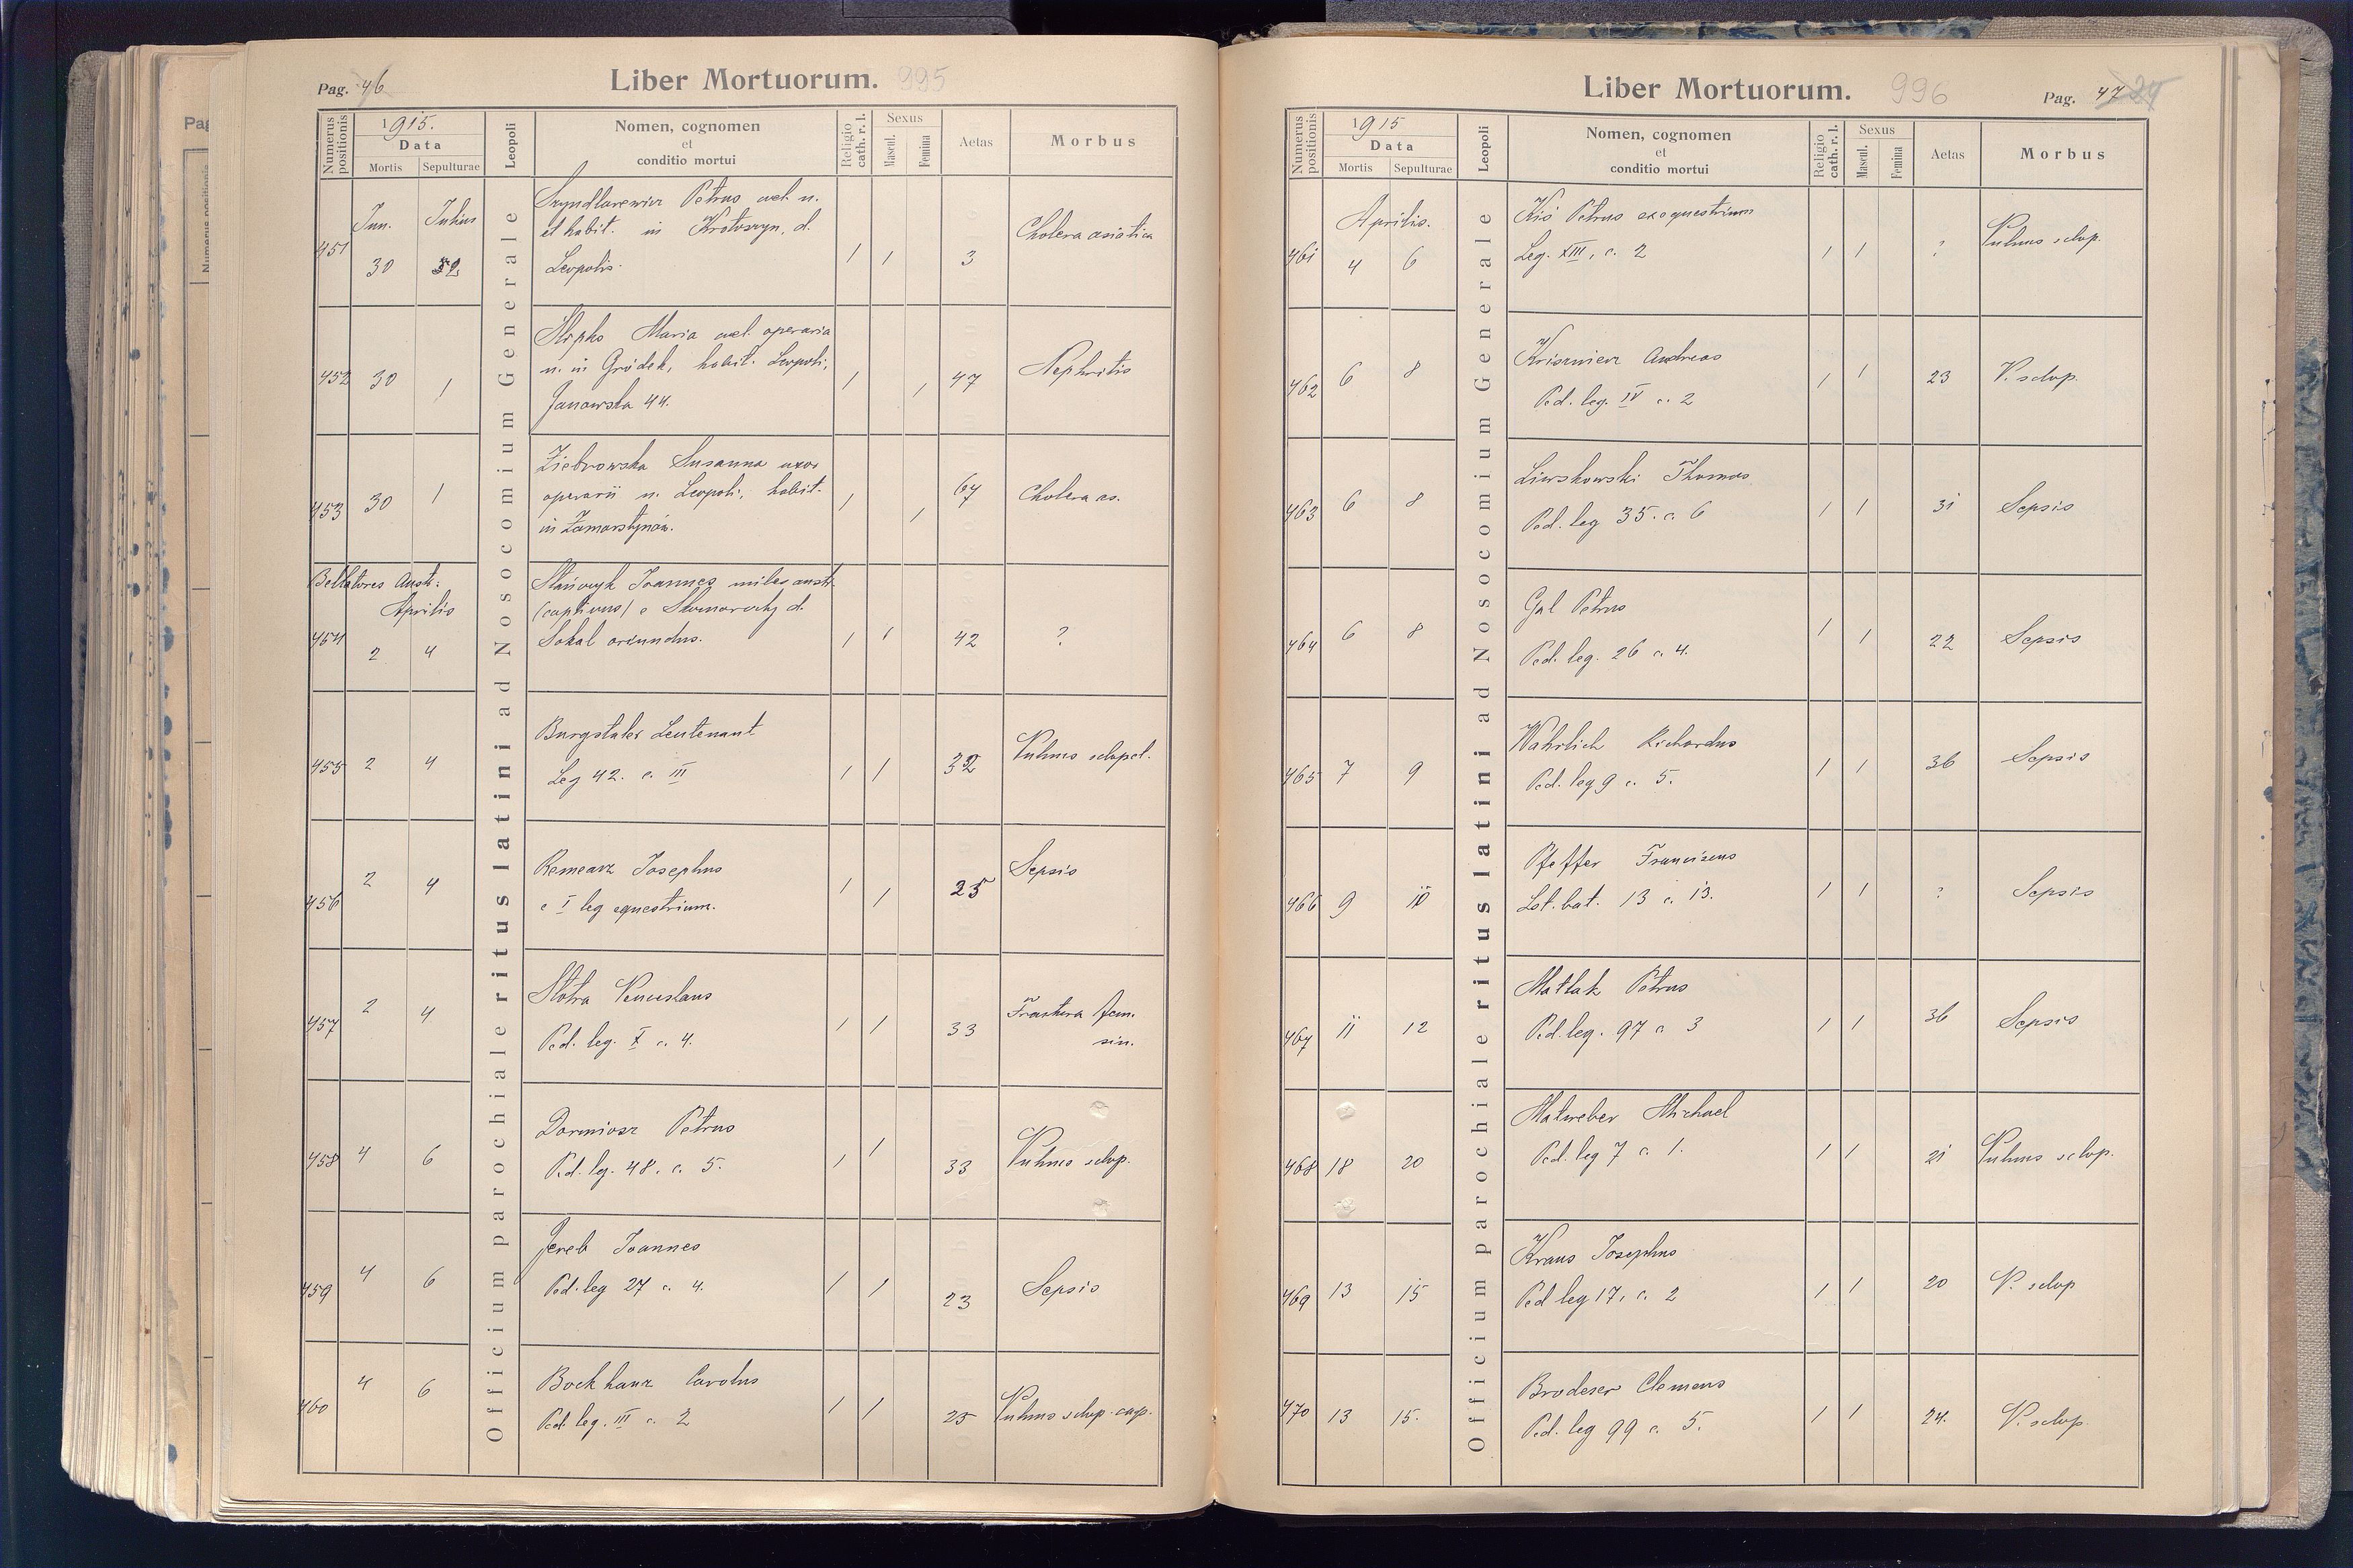 Pag. 46
Liber Mortuorum. 995
Numerus positionis
1915.
Data
Mortis
Sepulturae
Leopoli
Nomen, cognomen
et
conditio mortui
Religio
cath. r. l.
Sexus
Mascul.
Femina
Aetas
Morbus
Officium parochiale ritus latini ad Nosocomium Generale
Jun. Julius
Petrus ael. n.
et habit. in Krotoszyn, d.
Leopolis.
451 30 1 1 3 Cholera asiatica
Slipko Maria ael. operaria
n. in Gródek, habit. Leopoli,
Janowska 44.
452 30 1 1 1 47 Nephritis
Ziebrowska Susanna uxor
operarii n. Leopoli, habit.
in Zamarstynów.
453 30 1 1 1 67 Cholera as.
Bellatores Austr:
Aprilis
Joannes miles austr.
(captivus) e d.
Sokal oriundus.
454 2 4 1 1 42 ?
Burgstaler Leutenant
Leg 42. c. III
455 2 4 1 1 32 Vulnus sclopet.
Josephus
e I leg equestrium.
456 2 4 1 1 25 Sepsis
Slotra Venceslaus
Ped. leg. X c. 4.
457 2 4 1 1 33 Fractura fem.
sin.
Dormiosz Petrus
Ped. leg. 48. c. 5.
458 4 6 1 1 33 Vulnus sclop.
Jereb Joannes
Ped. leg 27 c. 4.
459 4 6 1 1 23 Sepsis
Bockhanz Carolus
Ped. leg. III c. 2
460 4 6 1 1 25 Vulnus sclop. cap.
Liber Mortuorum. 996
Pag. 47
Numerus positionis
1915
Data
Mortis
Sepulturae
Leopoli
Nomen, cognomen
et
conditio mortui
Religio
cath. r. l.
Sexus
Mascul.
Femina
Aetas
Morbus
Officium parochiale ritus latini ad Nosocomium Generale
Aprilis.
Kiś Petrus ex equestrium
Leg. XIII, c. 2
461 4 6 1 1 ? Vulnus sclop.
Andreas
Ped. leg. IV c. 2
462 6 8 1 1 23 V. sclop.
Thomas
Ped. leg 35. c. 6
463 6 8 1 1 31 Sepsis
Gal Petrus
Ped. leg. 26 c. 4.
464 6 8 1 1 22 Sepsis
Wahrlich Richardus
Ped. leg 9 c. 5.
465 7 9 1 1 36 Sepsis
Pfeffer Franciscus
bat. 13 c. 13.
466 9 10 1 1 ? Sepsis
Matlak Petrus
Ped. leg. 97 c 3
467 11 12 1 1 36 Sepsis
Michael
Ped. leg 7 c. 1.
468 18 20 1 1 21 Vulnus sclop.
Kraus Josephus
Ped leg 17, c. 2
469 13 15 1 1 20 V. sclop
Brodeser Clemens
Ped. leg 99 c. 5.
470 13 15. 1 1 24. V. sclop.